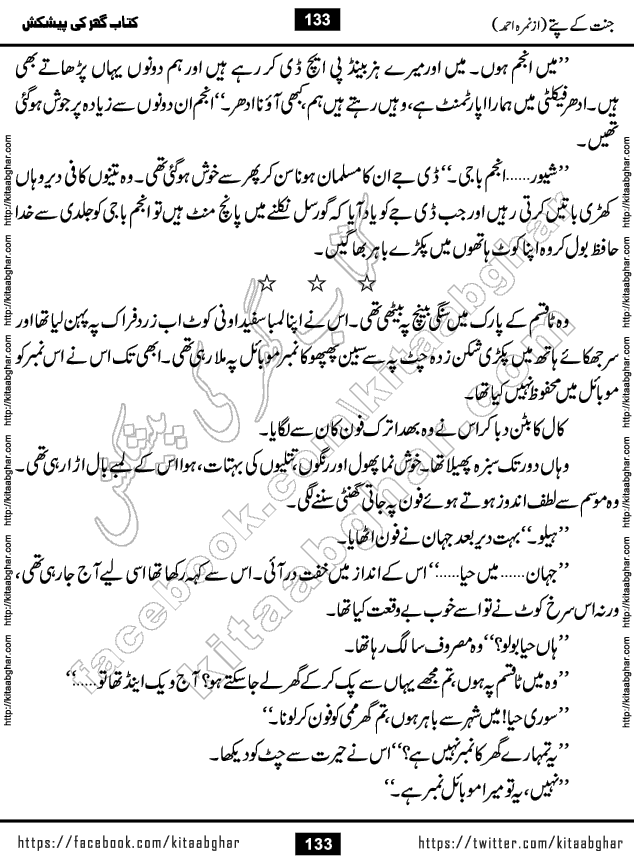 جنت کے پتے (از نمرہ احمد)
133
کتاب گھر کی پیشکش
’’میں انجم ہوں۔ میں اور میرے ہزبینڈ پی ایچ ڈی کر رہے ہیں اور ہم دونوں یہاں پڑھاتے بھی
ہیں۔ ادھر فیکلٹی میں ہمارا اپارٹمنٹ ہے، وہیں رہتے ہیں ہم، کبھی آؤ نا ادھر۔‘‘ انجم ان دونوں سے زیادہ پرجوش ہوگئی
تھیں۔
’’شیور...... انجم باجی۔‘‘ ڈی جے ان کا مسلمان ہونا سن کر پھر سے خوش ہوگئی تھی۔ وہ تینوں کافی دیر وہاں
کھڑی باتیں کرتی رہیں اور جب ڈی جے کو یاد آیا کہ گورسل نکلنے میں پانچ منٹ ہیں تو انجم باجی کو جلدی سے خدا
حافظ بول کر وہ اپنا کوٹ ہاتھوں میں پکڑے باہر بھاگیں۔
☆ ☆ ☆
وہ ٹاقسم کے پارک میں سنگی بینچ پہ بیٹھی تھی۔ اس نے اپنا لمبا سفید اونی کوٹ اب زرد فراک پہ پہن لیا تھا اور
سر جھکائے ہاتھ میں پکڑی شکن زدہ چٹ پہ سے سبین پھپھو کا نمبر موبائل پہ ملا رہی تھی۔ ابھی تک اس نے اس نمبر کو
موبائل میں محفوظ نہیں کیا تھا۔
کال کا بٹن دبا کر اس نے وہ بھدا ترک فون کان سے لگایا۔
وہاں دور تک سبزہ پھیلا تھا۔ خوش نما پھول اور رنگوں، تتلیوں کی بہتات، ہوا اس کے لمبے بال اڑا رہی تھی۔
وہ موسم سے لطف اندوز ہوتے ہوئے فون پہ جاتی گھنٹی سننے لگی۔
’’ہیلو۔‘‘ بہت دیر بعد جہان نے فون اٹھایا۔
’’جہان...... میں حیا......‘‘ اس کے انداز میں خفت در آئی۔ اس سے کہہ رکھا تھا اسی لیے آج جا رہی تھی،
ورنہ اس سرخ کوٹ نے تو اسے خوب بے وقعت کیا تھا۔
’’ہاں حیا بولو؟‘‘ وہ مصروف سا لگ رہا تھا۔
’’وہ میں ٹاقسم پہ ہوں، تم مجھے یہاں سے پک کر کے گھر لے جا سکتے ہو؟ آج ویک اینڈ تھا تو......‘‘
’’سوری حیا! میں شہر سے باہر ہوں، تم گھر ممی کو فون کر لو نا۔‘‘
’’یہ تمہارے گھر کا نمبر نہیں ہے؟‘‘ اس نے حیرت سے چٹ کو دیکھا۔
’’نہیں، یہ تو میرا موبائل نمبر ہے۔‘‘
http://kitaabghar.com http://kitaabghar.com http://kitaabghar.com http://kitaabghar.com http://kitaabghar.com http://kitaabghar.com
http://kitaabghar.com http://kitaabghar.com http://kitaabghar.com http://kitaabghar.com http://kitaabghar.com http://kitaabghar.com
کتاب گھر کی پیشکش
facebook.com/kitaabghar
kitaabghar.com
https://facebook.com/kitaabghar
133
https://twitter.com/kitaabghar